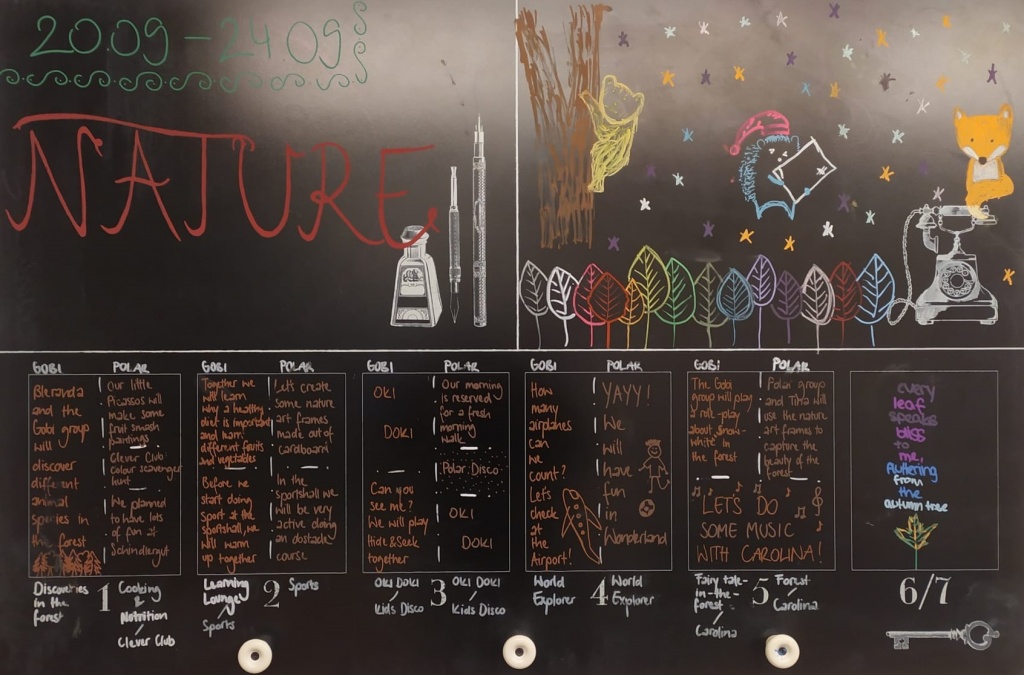 20.09 - 24.09
NATURE
GOBI
Bleranda
and the
Gobi group
will
discover
different
animal
species in
the forest
POLAR
Our little
Picassos will
make some
fruit smash
paintings
Clever Club
Colour scavenger
hunt
We planned
to have lots
of fun at
Schindlergut
Discoveries
in the
forest
1
Cooking
&
Nutrition
/
Clever Club
GOBI
Together we
will learn
why a healthy
diet is important
and learn
different fruits
and vegetables
Before we
start doing
sport at the
sportshall, we
will warm
up together
POLAR
Let's create
some nature
art frames
made out of
cardboard
In the
sportshall we
will be very
active doing
an obstacle
course
Learning
Lounge
/
Sports
2
Sports
GOBI
OKI
DOKI
Can you
see me?
We will play
Hide & Seek
together
POLAR
Our morning
is reserved
for a fresh
morning
walk
Polar Disco
OKI
DOKI
Oki Doki
/
Kids Disco
3
OKI DOKI
/
Kids Disco
GOBI
How
many
airplanes
can
we
count?
Let's
check
at
the
Airport!
POLAR
YAYY!
We
will
have
fun
in
Wonderland
World
Explorer
4
World
Explorer
GOBI
The Gobi
group will play
a role-play
about snow-
white in
the forest
POLAR
Polar group
and Tima will
use the nature
art frames to
capture the
beauty of the
forest
LET'S DO
SOME MUSIC
WITH CAROLINA!
Fairy tale-
in-the-
forest
/
Carolina
5
Forest
/
Carolina
every
leaf
speaks
bliss
to
me,
fluttering
from
the
autumn tree
6/7